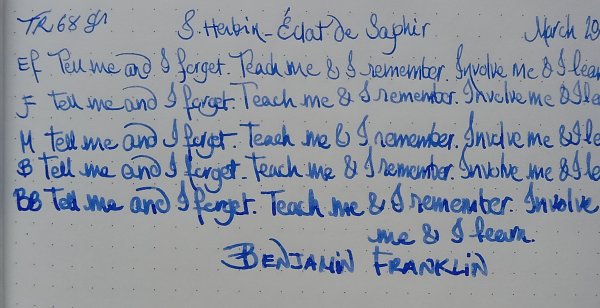 TR68gr J. Herbin - Éclat de Saphir March
EF Tell me and I forget. Teach me & I remember. Involve me & I lear
F tell me and I forget. Teach me & I remember. Involve me & I le
M tell me and I forget. Teach me & I remember. Involve me & I le
B Tell me and I forget. Teach me & I remember. Involve me & I le
BB Tell me and I forget. Teach me & I remember. Involve
me & I learn.
BENJAMIN FRANKLIN